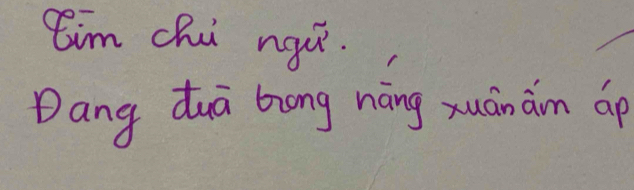 Tìm chủ ngữ.
Đang đuă trong nắng xuân ấm áp